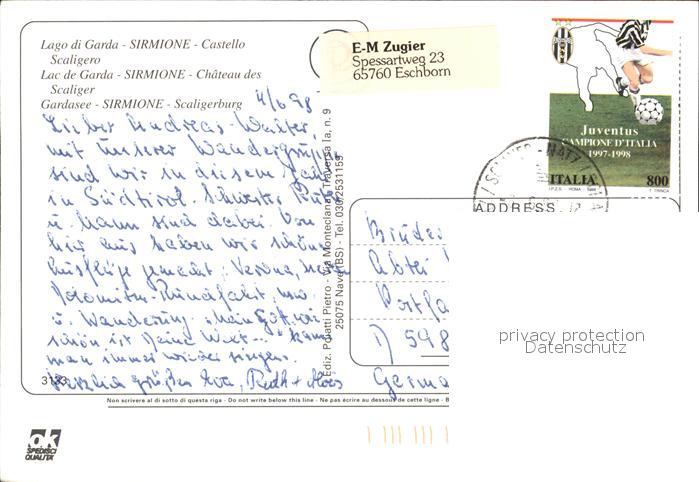 Lago di Garda - SIRMIONE - Castello
Scaligero
Lac de Garda - SIRMIONE - Château des
Scaliger
Gardasee - SIRMIONE - Scaligerburg
4/6 98
Lieber Andreas-Walter,
mit unserer Wandergruppe
sind wir in diesem Jahr
in Südtirol. Schwester Ruth
u. Mann sind dabei. Von
hier aus haben wir schöne
Ausflüge gemacht: Verona,
Dolomiten-Rundfahrt, usw.
u. Wanderung. "Mein Gott, wie
schön ist Deine Welt..." kann
man immer wieder singen.
Herzlich grüßen Eva, Ruth +
3133
Ediz. Polatti Pietro - Via Monteclana, Traversa Ia, n. 9
25075 Nave (BS) - Tel. 030/2531159
E-M Zugier
Spessartweg 23
65760 Eschborn
Juventus
CAMPIONE D'ITALIA
1997-1998
ITALIA 800
I.P.Z.S. - ROMA - 1998
T. TRINCA
ADDRESS
Bruder
Abtei
Postfa
D 598
Germa
privacy protection
Datenschutz
Non scrivere al di sotto di questa riga - Do not write below this line - Ne pas écrire au dessous de cette ligne - B
ok
SPEDISCI
QUALITA'